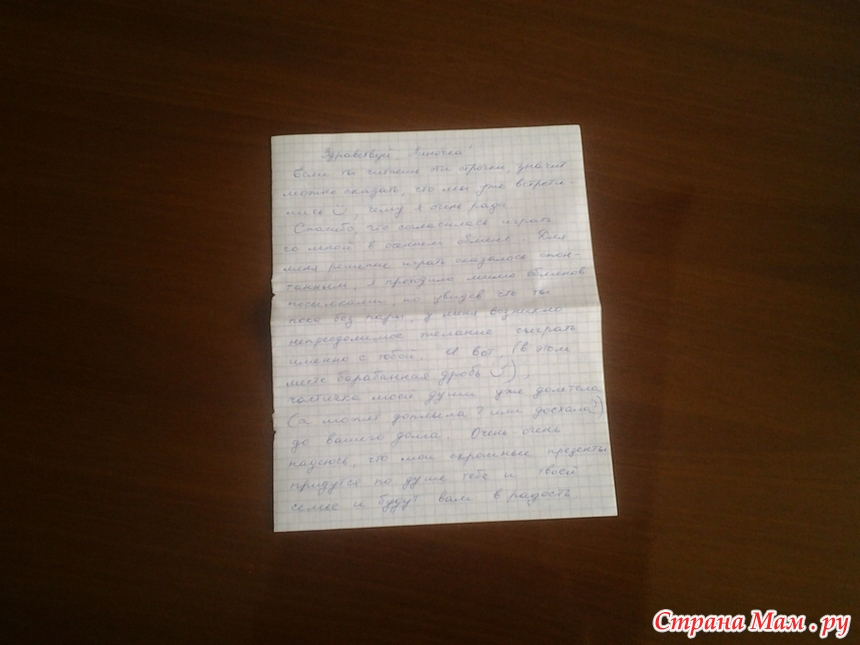 Здравствуй, "Линочка"
Если ты читаешь эти строчки, значит
можно сказать, что мы уже встрети-
лись, чему я очень рада
Спасибо, что согласилась играть
со мной в осеннем обмене. Для
меня решение играть оказалось спон-
танным. Я проходила мимо обменов
посылками, но увидев что ты
пока без пары, у меня возникло
непреодолимое желание сыграть
именно с тобой. И вот, (в этом
месте барабанная дробь),
частичка моей души уже долетела
(а может доплыла? или доехала?)
до вашего дома. Очень очень
надеюсь, что мои скромные презенты
придутся по душе тебе и твоей
семье и будут вам в радость.
Страна Мам.ру